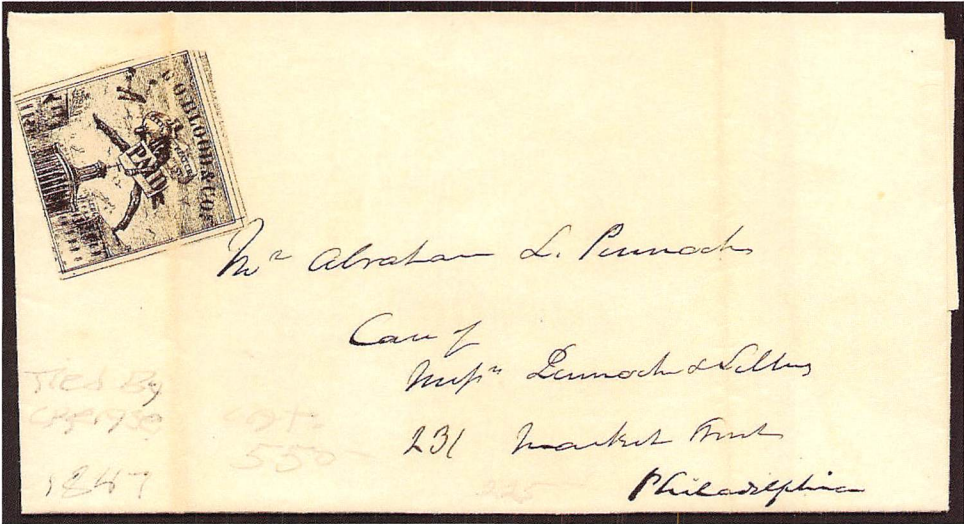 D.O. BLOOD & CO'S
PMD
Mr Abraham L. Pennock
Care of
Messrs Pennock & Sellers
231 Market Street
Philadelphia
Tied By
1847
550
225